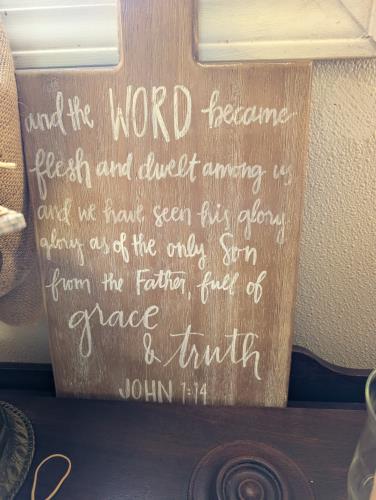 and the WORD became
flesh and dwelt among us
and we have seen his glory
glory as of the only Son
from the Father, full of
grace
& truth
JOHN 1:14